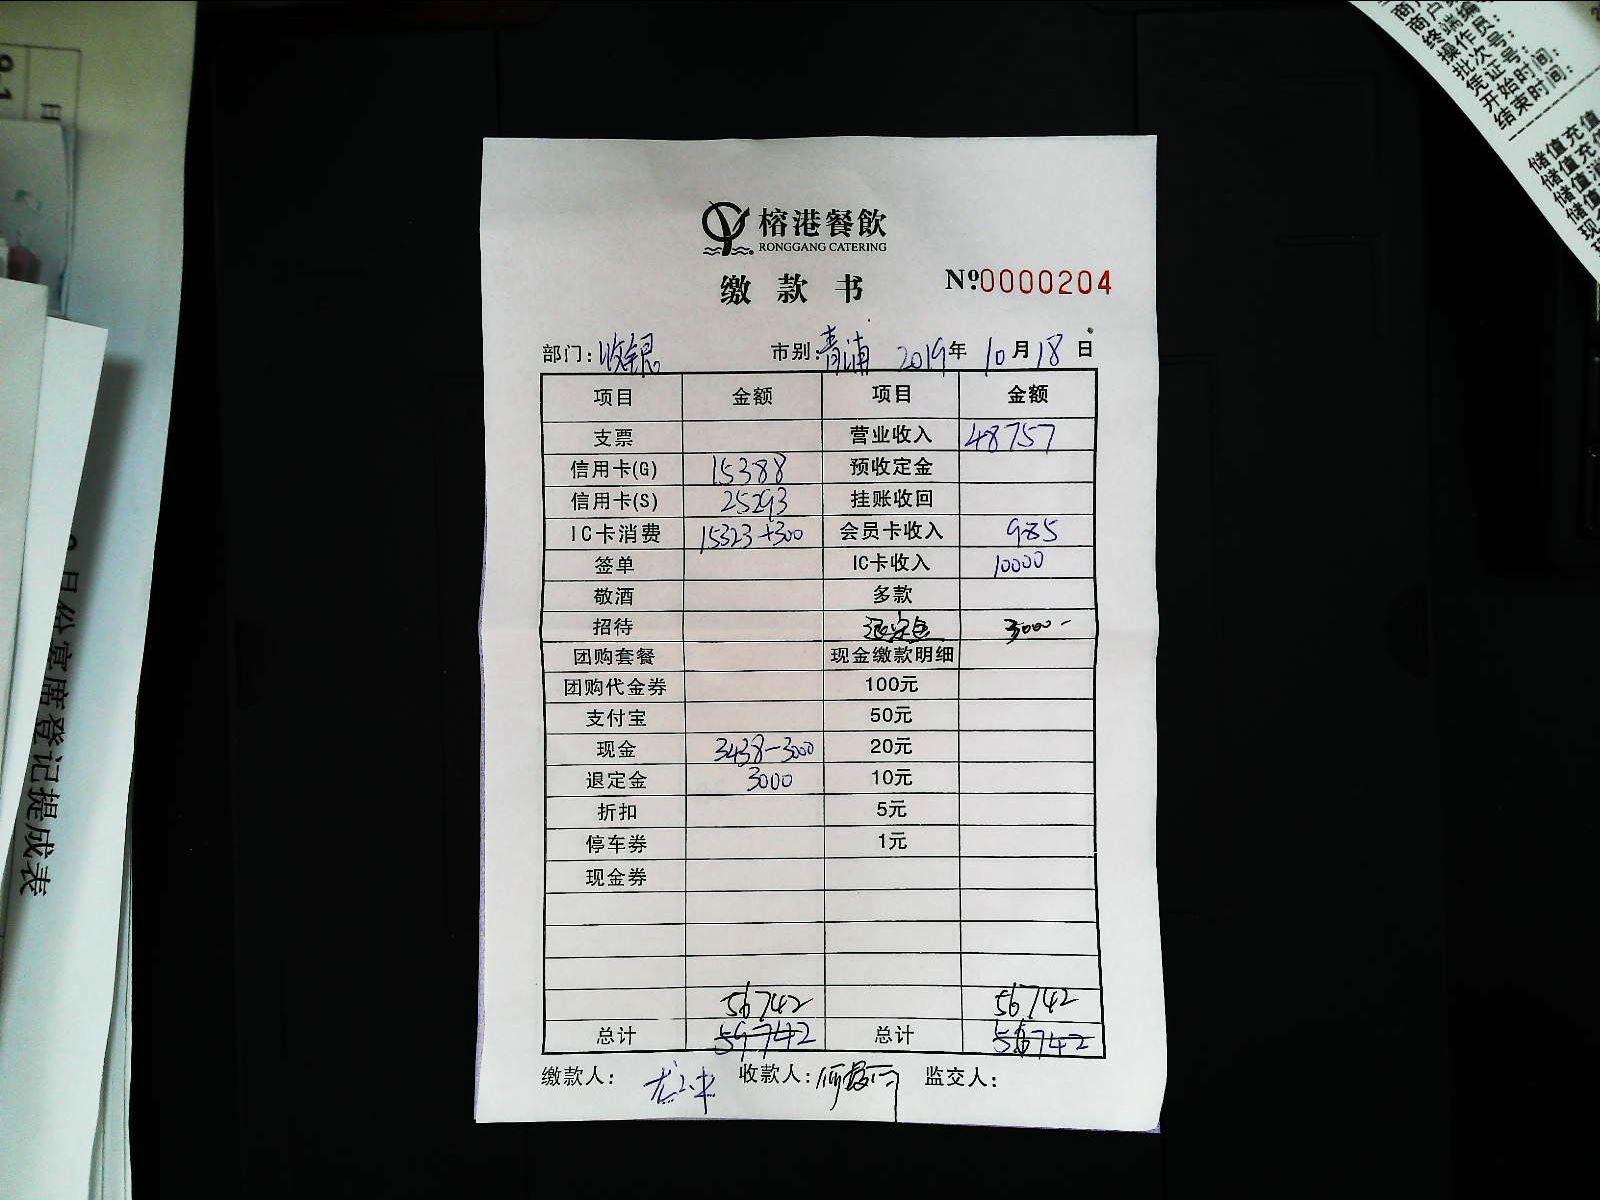 榕港餐飲
RONGGANG CATERING
缴款书 №0000204
部门：收银 市别：青浦 2019年10月18日
项目 金额 项目 金额
支票 营业收入 48757
信用卡(G) 15388 预收定金
信用卡(S) 25293 挂账收回
IC卡消费 15323+300 会员卡收入 985
签单 IC卡收入 10000
敬酒 多款
招待 退定金 3000-
团购套餐 现金缴款明细
团购代金券 100元
支付宝 50元
现金 3438-3000 20元
退定金 3000 10元
折扣 5元
停车券 1元
现金券
56742 56742
总计 59742 总计 56742
缴款人： 收款人： 监交人：
月份宴席登记提成表
日
操作员：
批次号：
凭证号：
开始时间：
结束时间：
储值充值
储值充值